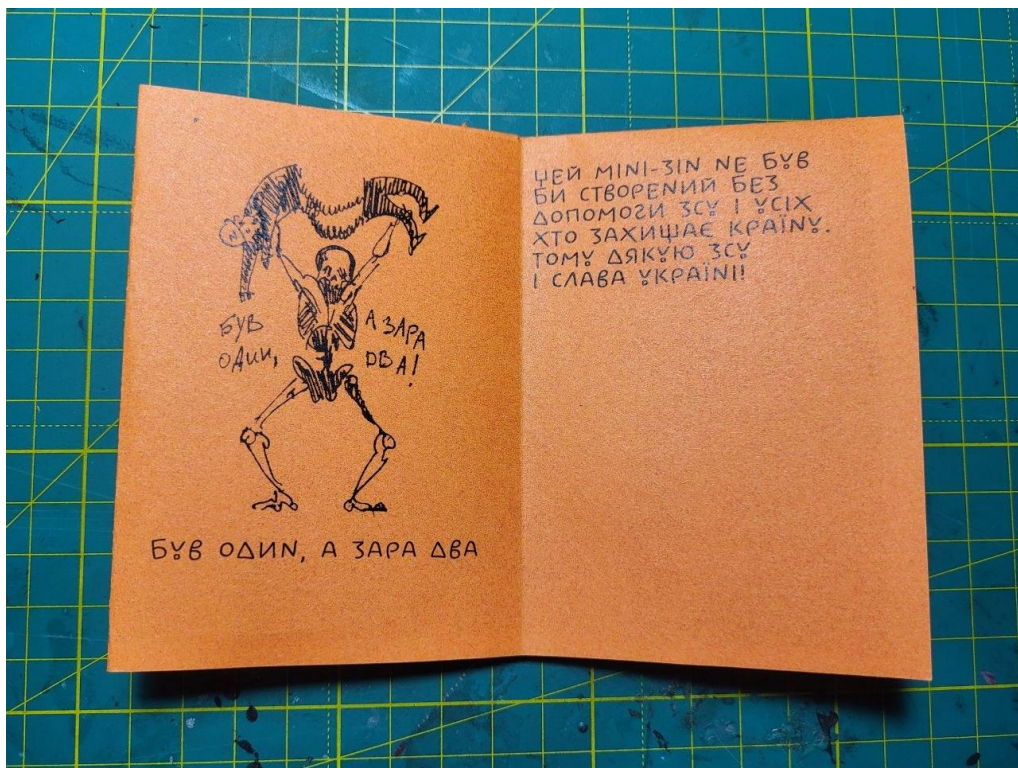 БУВ
ОДИН,
А ЗАРА
ДВА!
БУВ ОДИН, А ЗАРА ДВА
ЦЕЙ МІНІ-ЗІН НЕ БУВ
БИ СТВОРЕНИЙ БЕЗ
ДОПОМОГИ ЗСУ І УСІХ
ХТО ЗАХИЩАЄ КРАЇНУ.
ТОМУ ДЯКУЮ ЗСУ
І СЛАВА УКРАЇНІ!